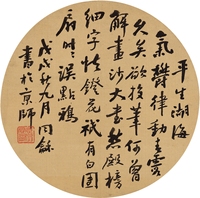 平生湖海
氣鬱律動雲霞
久矣欲投筆何曾
解畫沙大書無殿榜
細字怯鐙花祇有白團
扇時〻誤點鴉
戊戌秋九月同龢
書於京師